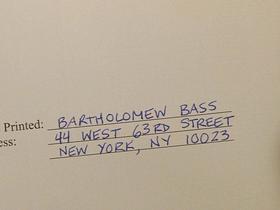 Printed: BARTHOLOMEW BASS
ess: 44 WEST 63RD STREET
NEW YORK, NY 10023